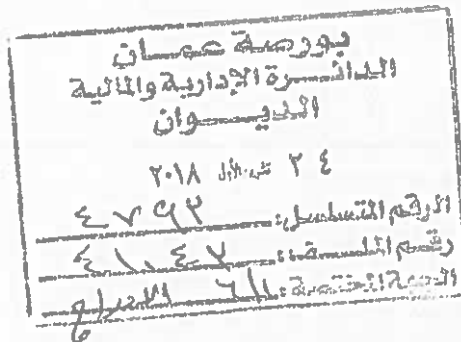 بورصة عمان
الدائرة الإدارية والمالية
الديوان
٢٤ تشرين الأول ٢٠١٨
الرقم المتسلسل: ٤٧٩٢
رقم الملف: ٤١٠٤٧
الجهة المختصة: